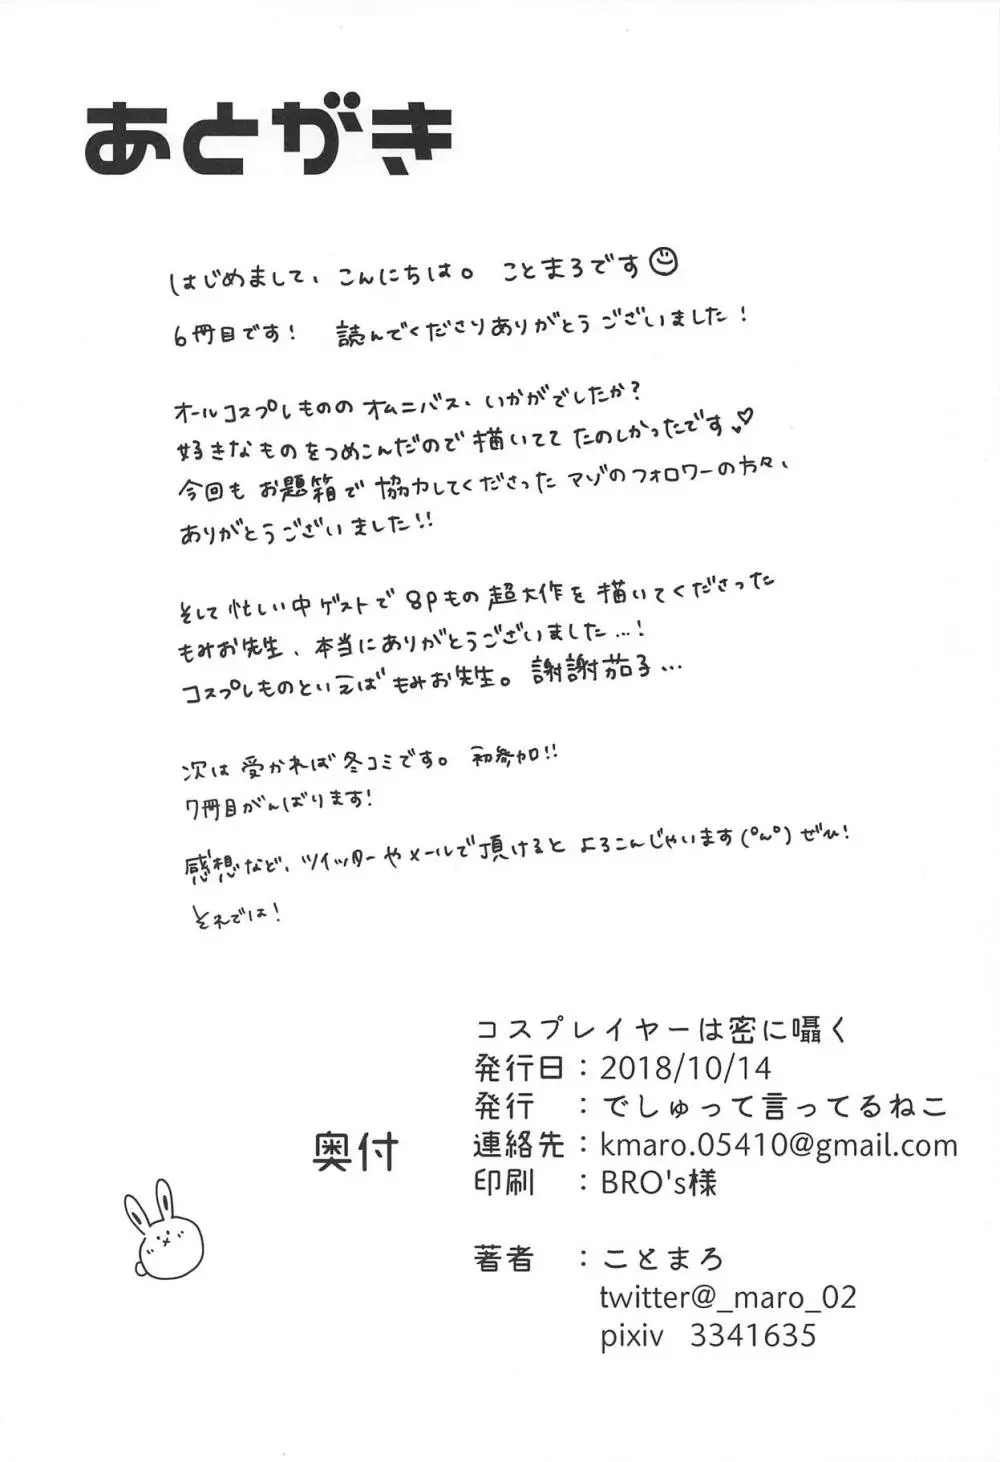 あとがき
はじめまして、こんにちは。 ことまろです
6冊目です! 読んでくださりありがとうございました!
オールコスプレもののオムニバス、いかがでしたか?
好きなものをつめこんだので描いてて たのしかったです
今回も お題箱で 協力してくださった マゾのフォロワーの方々、
ありがとうございました!!
そして忙しい中ゲストで 8pもの 超大作を 描いてくださった
もみお先生、本当にありがとうございました…!
コスプレものといえば もみお先生。謝謝茄子…
次は 受かれば 冬コミです。 初参加!!
7冊目がんばります!
感想など、ツイッターやメールで頂けると よろこんじゃいます(°ん°) ぜひ!
それでは!
奥付
コスプレイヤーは密に囁く
発行日:2018/10/14
発行 :でしゅって言ってるねこ
連絡先:kmaro.05410@gmail.com
印刷 :BRO's様
著者 :ことまろ
twitter@_maro_02
pixiv 3341635